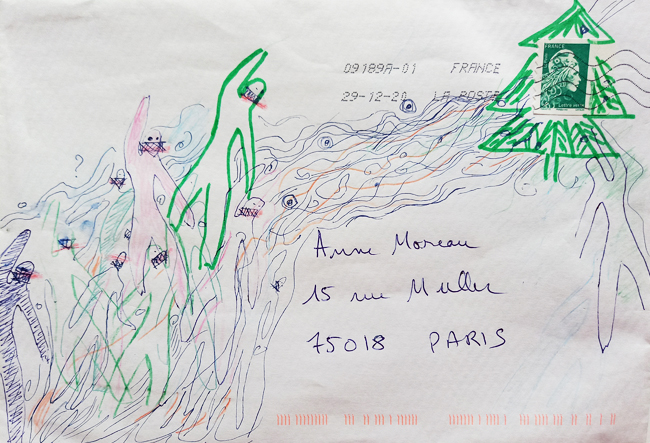 09189A-01 FRANCE
29-12-20 LA POSTE
FRANCE
Anne Moreau
15 rue Muller
75018 PARIS